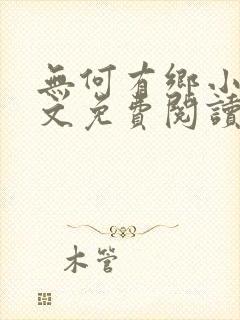 無何有鄉小
文免費閱讀
木管